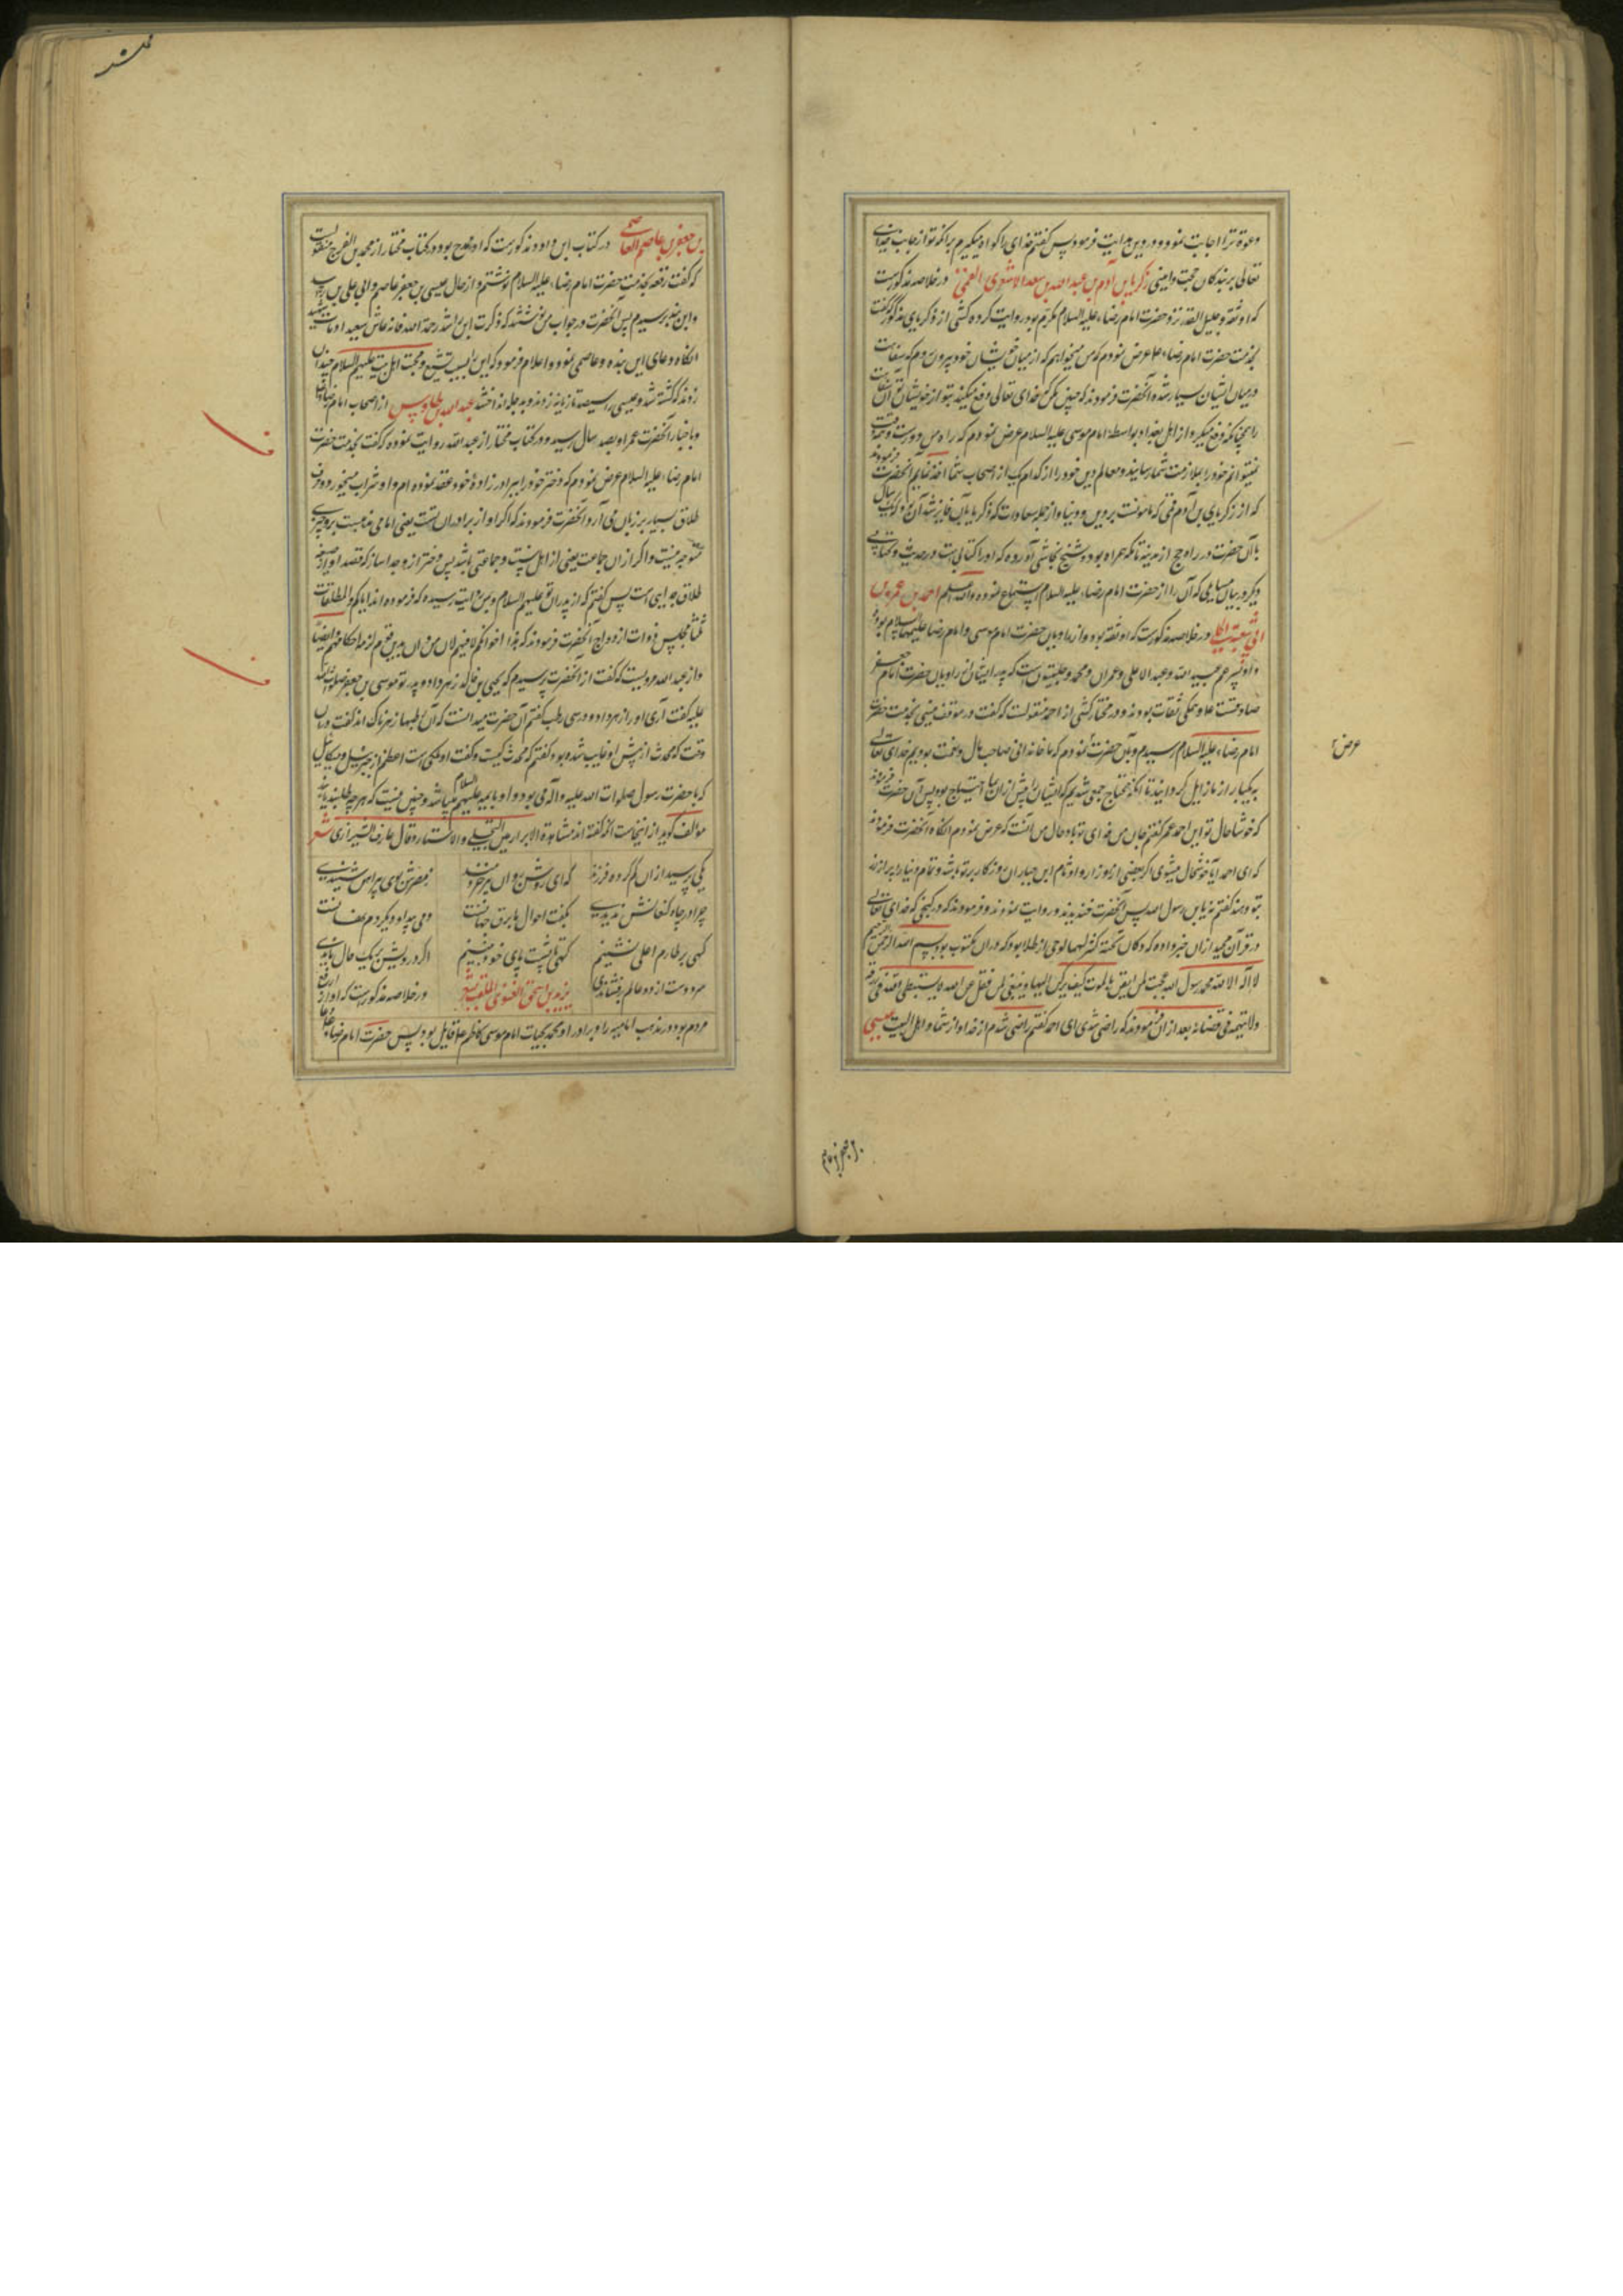 دعوة ترا اجابت نمود و درین هدایت فرمود پس گفتم خدای را گواه میگیرم برانکه تو از جانب خدای
تعالی بر بندکان حجت و امینی زکریا بن آدم بن عبد الله بن سعد الاشعری القمی در خلاصه مذکورست
که او ثقه و جلیل القدر نزد حضرت امام رضا علیه السلام مکرم بود روایت کرده کشی از زکریای مذکور که گفت
بخدمت حضرت امام رضا ع عرض نمودم که من میخواهم که از میان خویشان خود بیرون روم که سفاهت
در میان ایشان بسیار شده آنحضرت فرمودند که چنین مکن که خدای تعالی دفع میکند بتو از خویشان تو
را همچنانکه دفع میکرد از اهل بغداد بواسطه امام موسی علیه السلام عرض نمودم که راه من دورست و همه وقت
نمیتوانم خود را بملازمت شما رسانید و معالم دین خود را از کدام یک از اصحاب شما اخذ نمایم آنحضرت فرمودند
که از زکریای بن آدم قمی که مامونست بر دین و دنیا و از جمله سعادات که زکریا بآن فایز شد آن بود که یک سال
با آن حضرت در راه حج از مدینه تا مکه همراه بود و شیخ نجاشی آورده که او را کتابی است در حدیث و کتابی
دیگر در بیان مسایلی که آن را از حضرت امام رضا علیه السلام استماع نموده والله اعلم احمد بن عمر بن
ابی شعبة الحلبی در خلاصه مذکورست که او ثقه بود و از راویان حضرت امام موسی و امام رضا علیهما السلام بود
و او پسر عم عبید الله و عبد الاعلی و عمران و محمد حلبیین است که پدر ایشان از راویان حضرت امام جعفر
صادقست ع و همگی ثقات بودند و در مختار کشی از احمد منقولست که گفت در موقف منی بخدمت حضرت
امام رضا علیه السلام رسیدم و بآن حضرت نمودم که ما خانه دانی صاحب مال و نعمت بودیم خدای تعالی
به یکبار از ما زایل گردانید تا آنکه محتاج جمعی شدیم که ایشان را پیش ازان بما احتیاج بود پس آن حضرت فرمودند
که خوشا حال تو ای احمد عمر گفتم جان من فدای تو باد حال من آنست که عرض نمودم آنگاه آنحضرت فرمودند
که ای احمد آیا خوشحال میشوی اگر بعضی از
بتو دهند گفتم نه یا بن رسول الله پس آنحضرت خندیدند و روایت نمودند و فرمودند که در گنجی که خدای تعالی
در قرآن مجید ازان خبر داده که و کان تحته کنز لهما لوحی از طلا بود که دران مکتوب بود بسم الله الرحمن الرحیم
لا اله الا الله محمد رسول الله عجبت لمن ایقن بالموت کیف یفرح
و لا یتهمه فی قضائه بعد ازان فرمودند که راضی شدی ای احمد گفتم راضی شدم از خدا و از شما و اهل البیت عیسی
عرض
بن جعفر بن عاصم العاصمی در کتاب ابن داود مذکورست که او ممدوح بود و در کتاب مختار از محمد بن الفرج منقولست
که گفت رقعه بخدمت حضرت امام رضا علیه السلام نوشتم و از حال عیسی بن جعفر عاصم و ابی علی بن راشد
و ابن بند پرسیدم پس آنحضرت در جواب من نوشتند که ذکرت ابن راشد رحمة الله فانه عاش سعیدا و مات شهیدا
آنگاه دعای ابن بند و عاصمی نمود و اعلام فرمود که این را بسبب تشیع و محبت اهل بیت علیهم السلام چندان
زدند که کشته شد و عیسی را سیصد تازیانه زدند و بدجله انداختند عبد الله بن طاوس از اصحاب امام رضا بود
و باخبار آنحضرت عمر او بصد سال رسید و در کتاب مختار از عبد الله روایت نموده که گفت بخدمت حضرت
امام رضا علیه السلام عرض نمودم که دختر خود را ببرادر زاده خود عقد نموده ام و او شراب میخورد و ذکر
طلاق بسیار بر زبان می آرد آنحضرت فرمودند که اگر او از برادران تست یعنی امامی مذهبست برو چیزی
متوجه نیست و اگر ازان جماعت یعنی از اهل سنت و جماعتی باشد پس دختر ازو جدا ساز که قصد او از صیغه
طلاق جدایی است پس گفتم که از پدران تو علیهم السلام بمن روایت رسیده که فرموده اند ایاکم و المطلقات
ثلثا بمجلس ذوات ازواج آنحضرت فرمودند که هذا اخوانکم لا فیهم لان من دان بدین قوم لزمه احکامهم ایضا
و از عبد الله مرویست که گفت از آنحضرت پرسیدم که یحیی بن خالد زهر داد و پدر تو موسی بن جعفر صلوات الله
علیه گفت آری او را زهر داد و در سی رطب گفتم آن حضرت میدانست که آن رطبها زهرناک اند گفت دران
وقت که محدث از پیش او غایب شده بود گفتم که محدث کیست گفت او ملکی است اعظم از جبرئیل و میکائیل
که با حضرت رسول صلوات الله علیه و آله می بود و او با ایمه علیهم السلام میباشد و چنین نیست که هر چه طلبند یابند
مؤلف گوید از اینجاست آنکه گفته اند مشاهدة الابرار بین التجلی و الاستتار و قال عارف الشیرازی شعر
یکی پرسید ازان گم کرده فرزند که ای روشن روان پیر خردمند ز مصرش بوی پیراهن شنیدی
چرا در چاه کنعانش ندیدی بگفت احوال ما برق جهانست دمی پیدا و دیگر دم نهانست
گهی بر طارم اعلی نشینم گهی تا پشت پای خود نبینم اگر درویش بر یک حال ماندی
سر و دست از دو عالم برفشاندی یزید بن اسحق الغنوی الملقب بشعر در خلاصه مذکورست که او از ارفع
مردم بود در مذهب امامیه را و برادر او محمد بحیات امام موسی کاظم ع قایل بود پس حضرت امام رضا ع